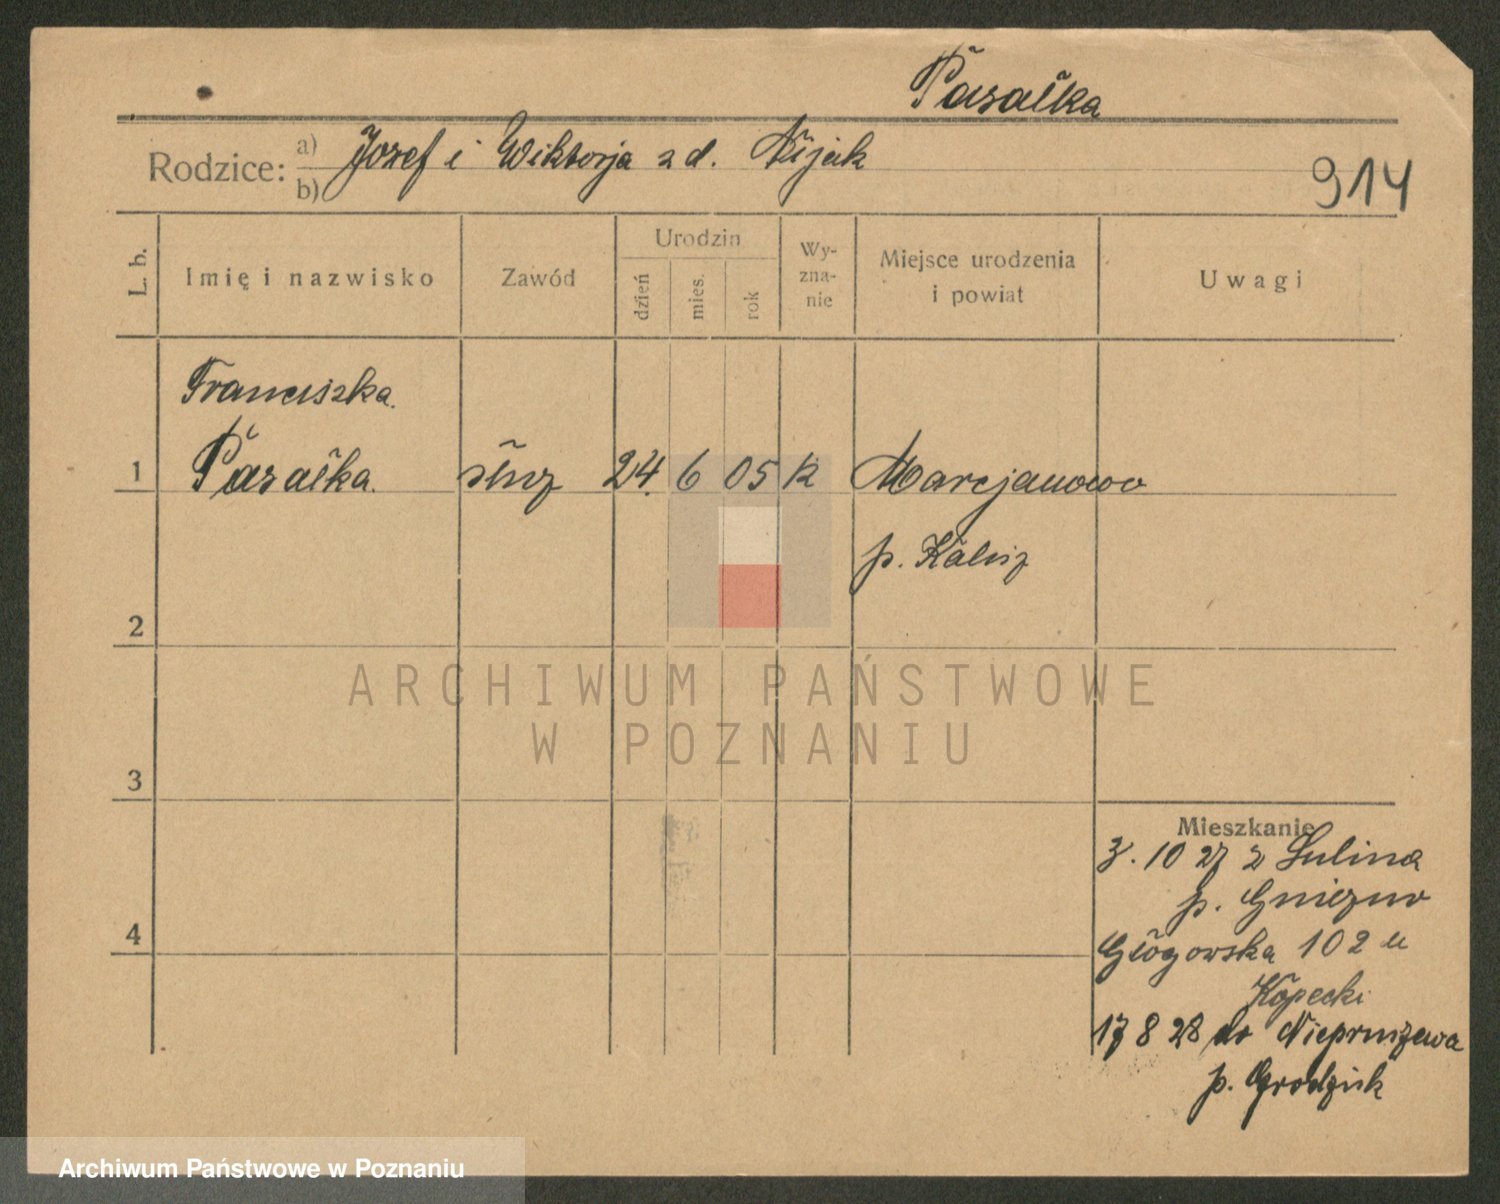 Pasałka
Rodzice: a) Józef i Wiktorja z d. Nijak
b)
914
L. b.
Imię i nazwisko
Zawód
Urodzin
dzień
mies.
rok
Wy-
zna-
nie
Miejsce urodzenia
i powiat
Uwagi
Franciszka
1 Pasałka służ 24. 6 05 k Marcjanowo
p. Kalisz
2
3
4
Mieszkanie
3. 10 27 z Sulina
p. Gniezno
Głogowska 102 u
Kopecki
17 8 28 do Niepruszewa
p. Grodzisk
ARCHIWUM PAŃSTWOWE
W POZNANIU
Archiwum Państwowe w Poznaniu